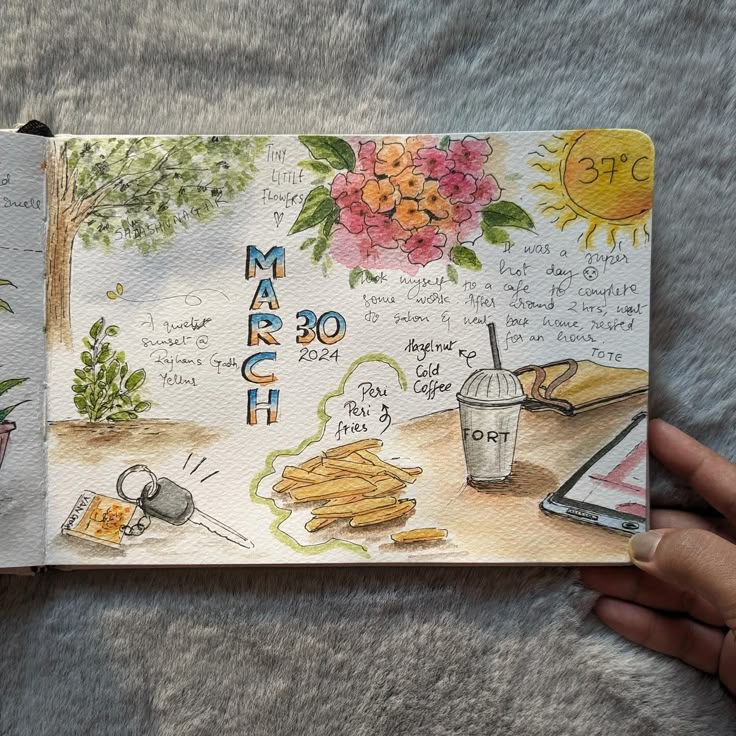 TINY
LITTLE
FLOWERS
SADASHIVNAGAR
37°C
It was a super
hot day
Took myself to a cafe to complete
some work. After around 2 hrs, went
to salon & went back home, rested
for an hour
MARCH
30
2024
A quiet
sunset @
Rajhans Gadh
Yellur
Hazelnut
Cold
Coffee
Peri
Peri
fries
TOTE
FORT
VAN GOGH